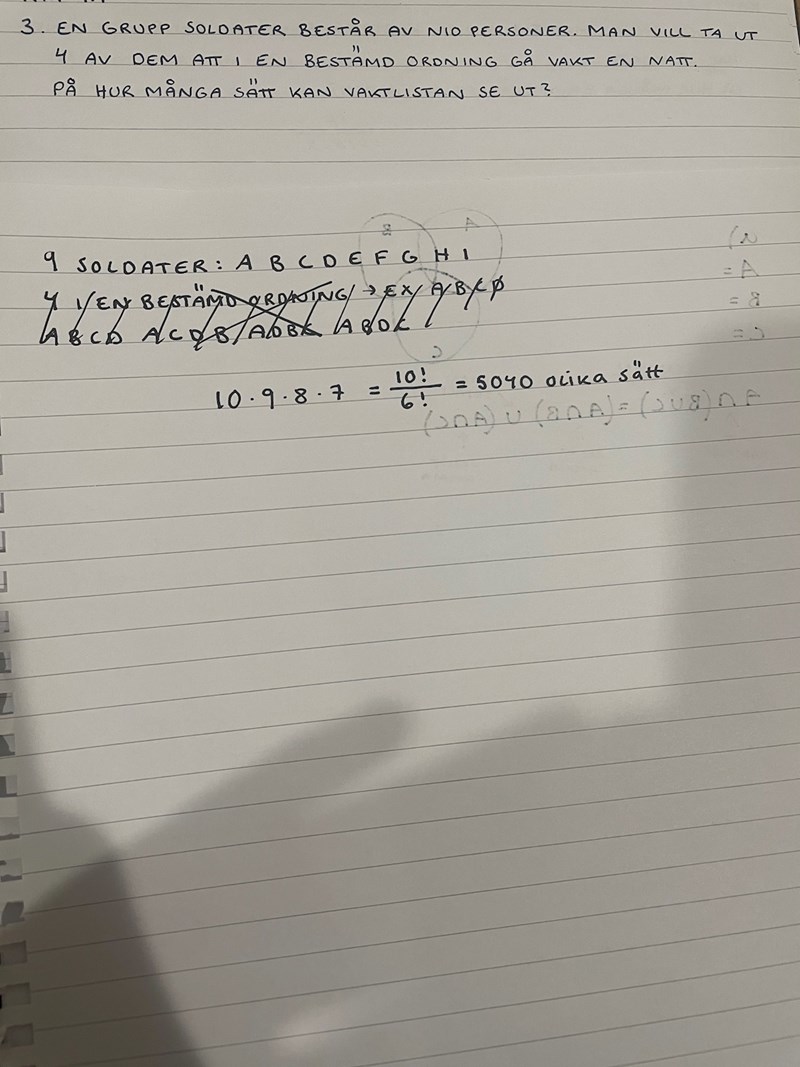 3. EN GRUPP SOLDATER BESTÅR AV NIO PERSONER. MAN VILL TA UT
4 AV DEM ATT I EN BESTÄMD ORDNING GÅ VAKT EN NATT.
PÅ HUR MÅNGA SÄTT KAN VAKTLISTAN SE UT?
9 SOLDATER: A B C D E F G H I
4 I EN BESTÄMD ORDNING → EX A B C D
A B C D A C D B A D B C A B D C
10 · 9 · 8 · 7 = 10!/6! = 5040 olika sätt
A ∩ (B ∪ C) = (A ∩ B) ∪ (A ∩ C)